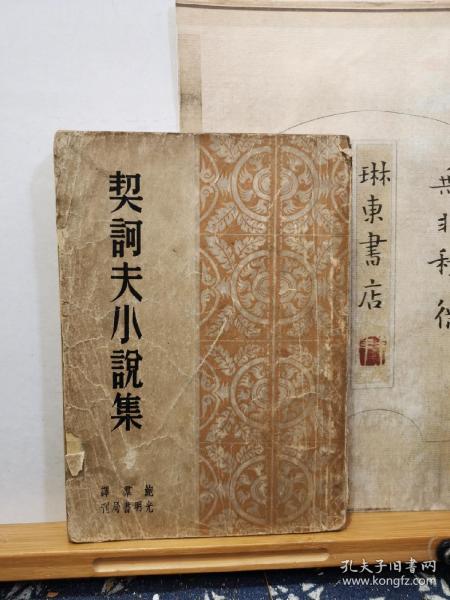 契訶夫小說集
鮑羣譯
光明書局刊
琳東書店
孔夫子旧书网
www.kongfz.com